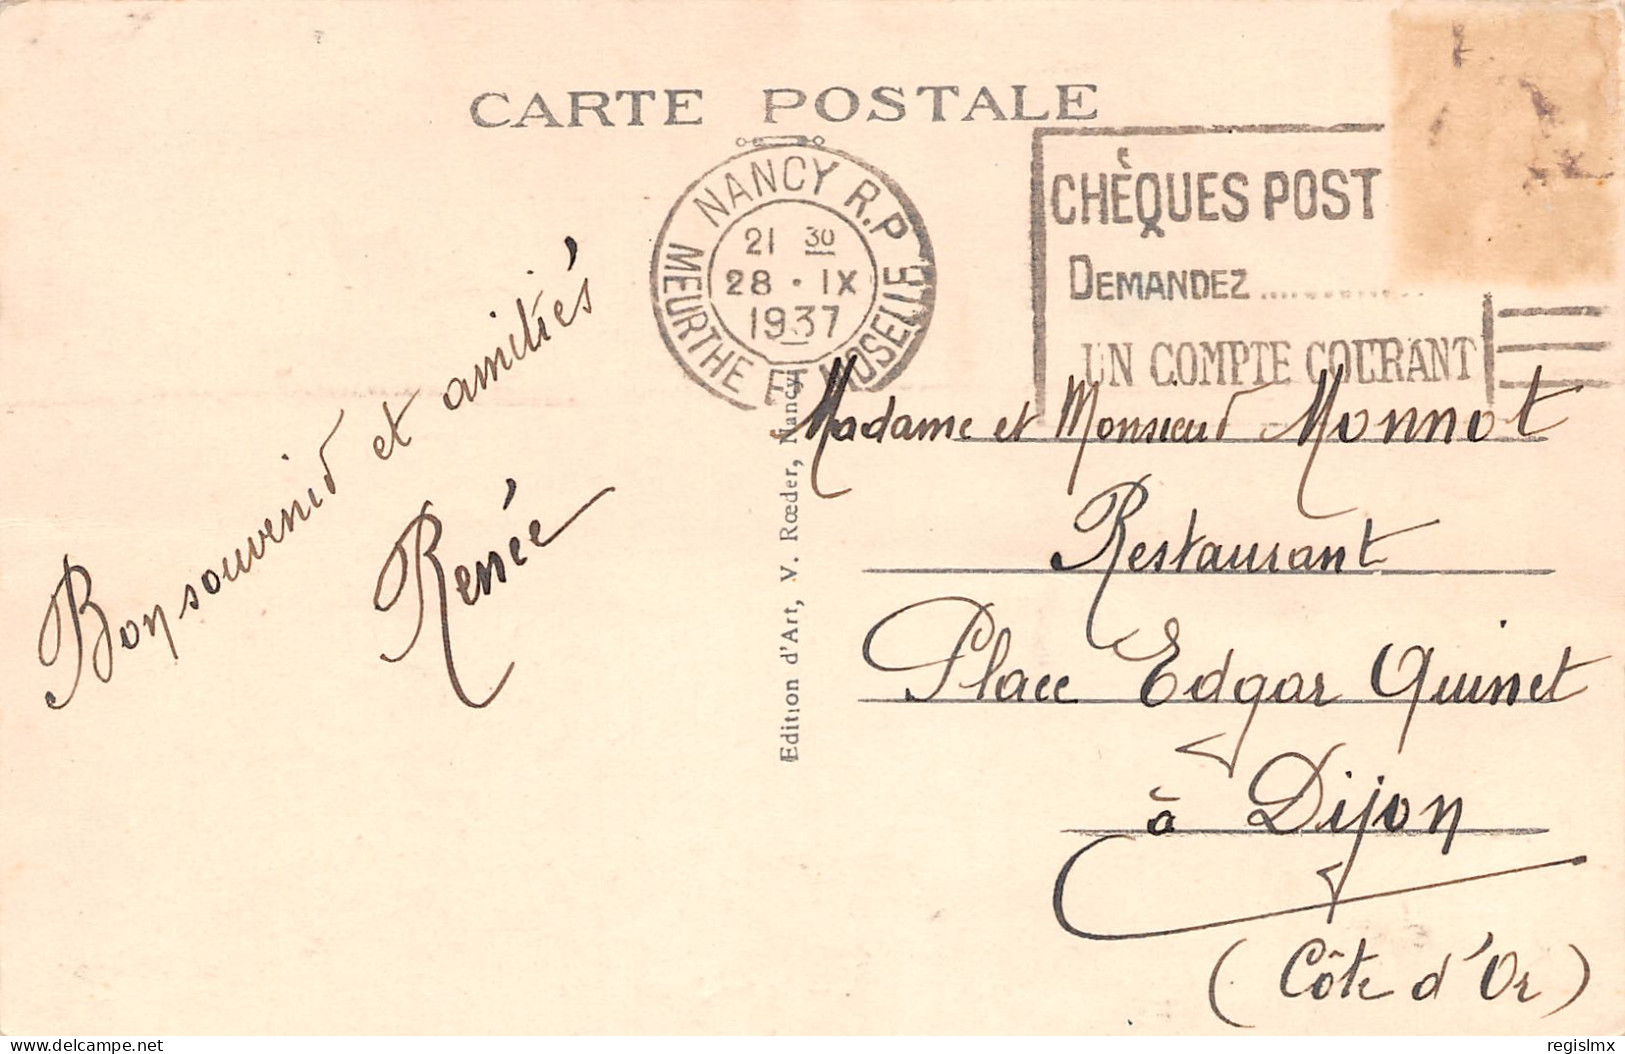 CARTE POSTALE
NANCY R.P
21 30
28 · IX
1937
MEURTHE ET MOSELLE
CHÈQUES POST
DEMANDEZ ............
UN COMPTE COURANT
Bon souvenir et amitiés
Renée
Edition d'Art, V. Rœder, Nancy
Madame et Monsieur Monnot
Restaurant
Place Edgar Quinet
à Dijon
(Côte d'Or)
delcampe.net
regislmx